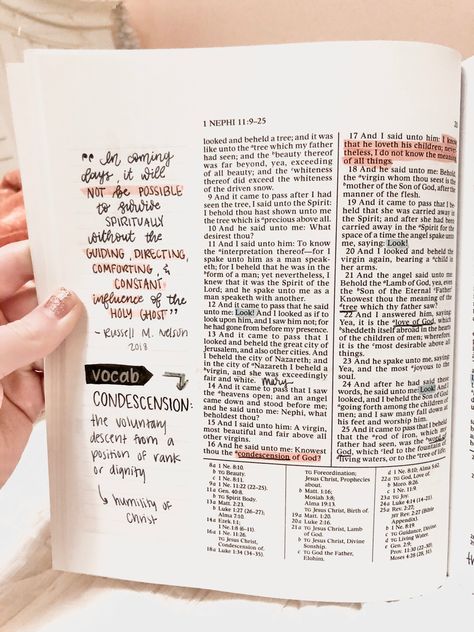 1 NEPHI 11:9–25
"In coming
days, it will
NOT be POSSIBLE
to survive
SPIRITUALLY
without the
GUIDING, DIRECTING,
COMFORTING, &
CONSTANT
influence of the
HOLY GHOST"
- Russell M. Nelson
2018
VOCAB
CONDESCENSION:
the voluntary
descent from a
position of rank
or dignity
↳ humility of
Christ
looked and beheld a tree; and it was
like unto the tree which my father
had seen; and the beauty thereof
was far beyond, yea, exceeding
of all beauty; and the whiteness
thereof did exceed the whiteness
of the driven snow.
9 And it came to pass after I had
seen the tree, I said unto the Spirit:
I behold thou hast shown unto me
the tree which is precious above all.
10 And he said unto me: What
desirest thou?
11 And I said unto him: To know
the interpretation thereof—for I
spake unto him as a man speak-
eth; for I beheld that he was in the
form of a man; yet nevertheless, I
knew that it was the Spirit of the
Lord; and he spake unto me as a
man speaketh with another.
12 And it came to pass that he said
unto me: Look! And I looked as if to
look upon him, and I saw him not; for
he had gone from before my presence.
13 And it came to pass that I
looked and beheld the great city of
Jerusalem, and also other cities. And
I beheld the city of Nazareth; and
in the city of Nazareth I beheld a
virgin, and she was exceedingly
fair and white. mary
14 And it came to pass that I saw
the heavens open; and an angel
came down and stood before me;
and he said unto me: Nephi, what
beholdest thou?
15 And I said unto him: A virgin,
most beautiful and fair above all
other virgins.
16 And he said unto me: Knowest
thou the condescension of God?
17 And I said unto him: I know
that he loveth his children; never-
theless, I do not know the meaning
of all things.
18 And he said unto me: Behold,
the virgin whom thou seest is the
mother of the Son of God, after the
manner of the flesh.
19 And it came to pass that I be-
held that she was carried away in
the Spirit; and after she had been
carried away in the Spirit for the
space of a time the angel spake unto
me, saying: Look!
20 And I looked and beheld the
virgin again, bearing a child in
her arms.
21 And the angel said unto me:
Behold the Lamb of God, yea, even
the Son of the Eternal Father!
Knowest thou the meaning of the
tree which thy father saw?
22 And I answered him, saying:
Yea, it is the love of God, which
sheddeth itself abroad in the hearts
of the children of men; wherefore,
it is the most desirable above all
things.
23 And he spake unto me, saying:
Yea, and the most joyous to the
soul.
24 And after he had said these
words, he said unto me: Look! And I
looked, and I beheld the Son of God
going forth among the children of
men; and I saw many fall down at
his feet and worship him.
25 And it came to pass that I beheld
that the rod of iron, which my
father had seen, was the word of
God, which led to the fountain of
living waters, or to the tree of life;
8a 1 Ne. 8:10.
b TG Beauty.
c 1 Ne. 8:11.
9a 1 Ne. 11:22 (22–25).
11a Gen. 40:8.
b TG Spirit Body.
13a Matt. 2:23.
b Luke 1:27 (26–27);
Alma 7:10.
14a Ezek. 1:1;
1 Ne. 1:8 (6–11).
16a 1 Ne. 11:26.
TG Jesus Christ,
Condescension of.
18a Luke 1:34 (34–35).
TG Foreordination;
Jesus Christ, Prophecies
about.
b Matt. 1:16;
Mosiah 3:8;
Alma 19:13.
TG Jesus Christ, Birth of.
19a Matt. 1:20.
20a Luke 2:16.
21a TG Jesus Christ, Lamb
of God.
b TG Jesus Christ, Divine
Sonship.
c TG God the Father,
Elohim.
d 1 Ne. 8:10; Alma 5:62.
22a TG God, Love of.
b Moro. 8:26.
c 1 Ne. 11:9.
23a TG Joy.
24a Luke 4:14 (14–21).
25a Rev. 2:27;
b 1 Ne. 8:19.
c TG Guidance, Divine.
d TG Living Water.
e Gen. 2:9;
Prov. 11:30 (22–30);
Moses 4:28 (28, 31).